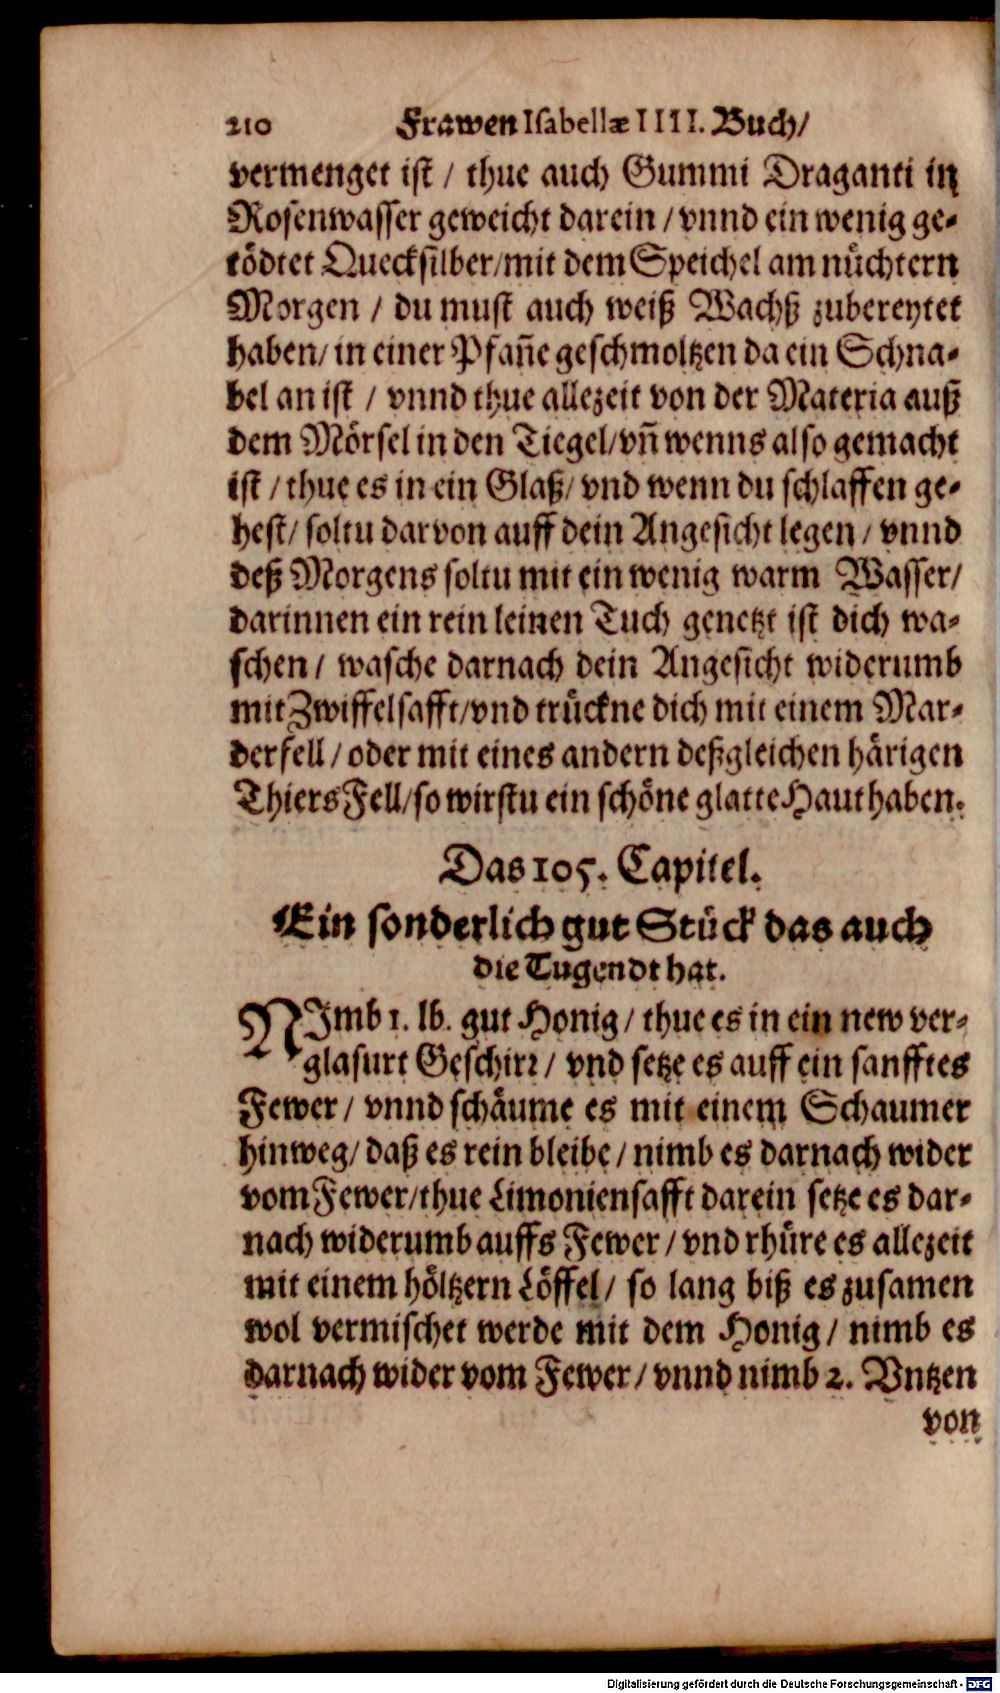 210 Frawen Isabellæ IIII. Buch/
vermenget ist / thue auch Gummi Draganti in
Rosenwasser geweicht darein / vnnd ein wenig ge-
tödtet Quecksilber/mit dem Speichel am nüchtern
Morgen / du must auch weiß Wachß zubereytet
haben/ in einer Pfañe geschmoltzen da ein Schna-
bel an ist / vnnd thue allezeit von der Materia auß
dem Mörsel in den Tiegel/vñ wenns also gemacht
ist / thue es in ein Glaß/ vnd wenn du schlaffen ge-
hest/ soltu darvon auff dein Angesicht legen / vnnd
deß Morgens soltu mit ein wenig warm Wasser/
darinnen ein rein leinen Tuch genetzt ist dich wa-
schen / wasche darnach dein Angesicht widerumb
mit Zwiffelsafft/vnd trückne dich mit einem Mar-
derfell / oder mit eines andern deßgleichen härigen
Thiers Fell/so wirstu ein schöne glatte Haut haben.
Das 105. Capitel.
Ein sonderlich gut Stück das auch
die Tugendt hat.
NImb 1. lb. gut Honig / thue es in ein new ver-
glasurt Geschirr / vnd setze es auff ein sanfftes
Fewer / vnnd schäume es mit einem Schaumer
hinweg/ daß es rein bleibe / nimb es darnach wider
vom Fewer/thue Limoniensafft darein setze es dar-
nach widerumb auffs Fewer / vnd rhüre es allezeit
mit einem höltzern Löffel / so lang biß es zusamen
wol vermischet werde mit dem Honig / nimb es
darnach wider vom Fewer / vnnd nimb 2. Vntzen
von
Digitalisierung gefördert durch die Deutsche Forschungsgemeinschaft - DFG